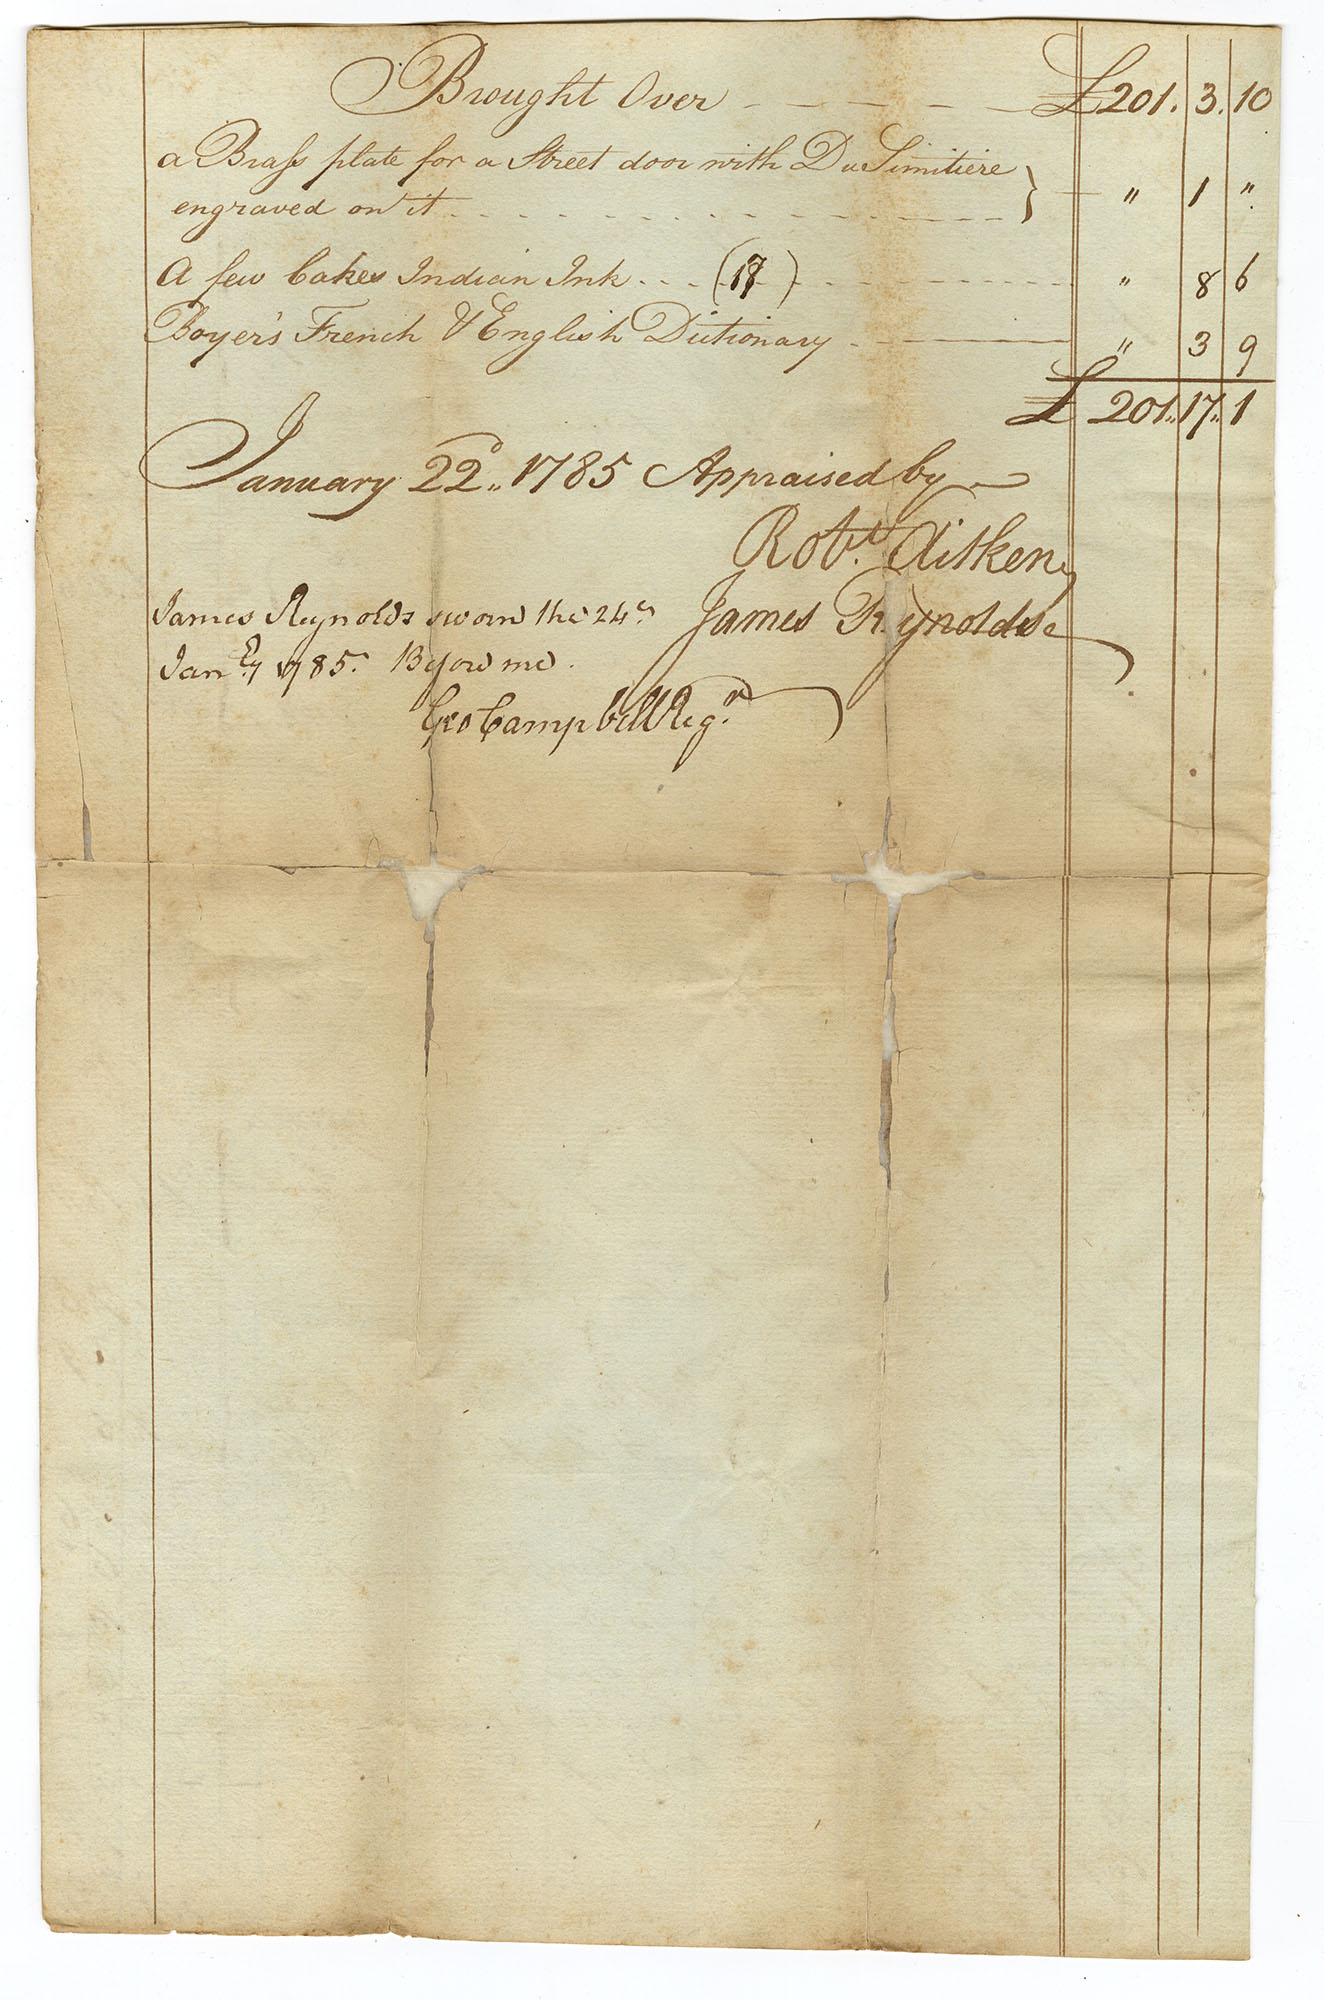 Brought Over - - - - - £201. 3. 10
a Brass plate for a Street door with DuSimitiere } " 1 "
engraved on it - - - - - - - - - -
A few Cakes Indian Ink - - - (17) - - - - " 8 6
Boyer's French & English Dictionary - - - " 3 9
£ 201.. 17.. 1
January 22d.. 1785 Appraised by
Robt. Aitken
James Reynolds
James Reynolds sworn the 24th
Jany. 1785. Before me.
Geo Campbell Regr